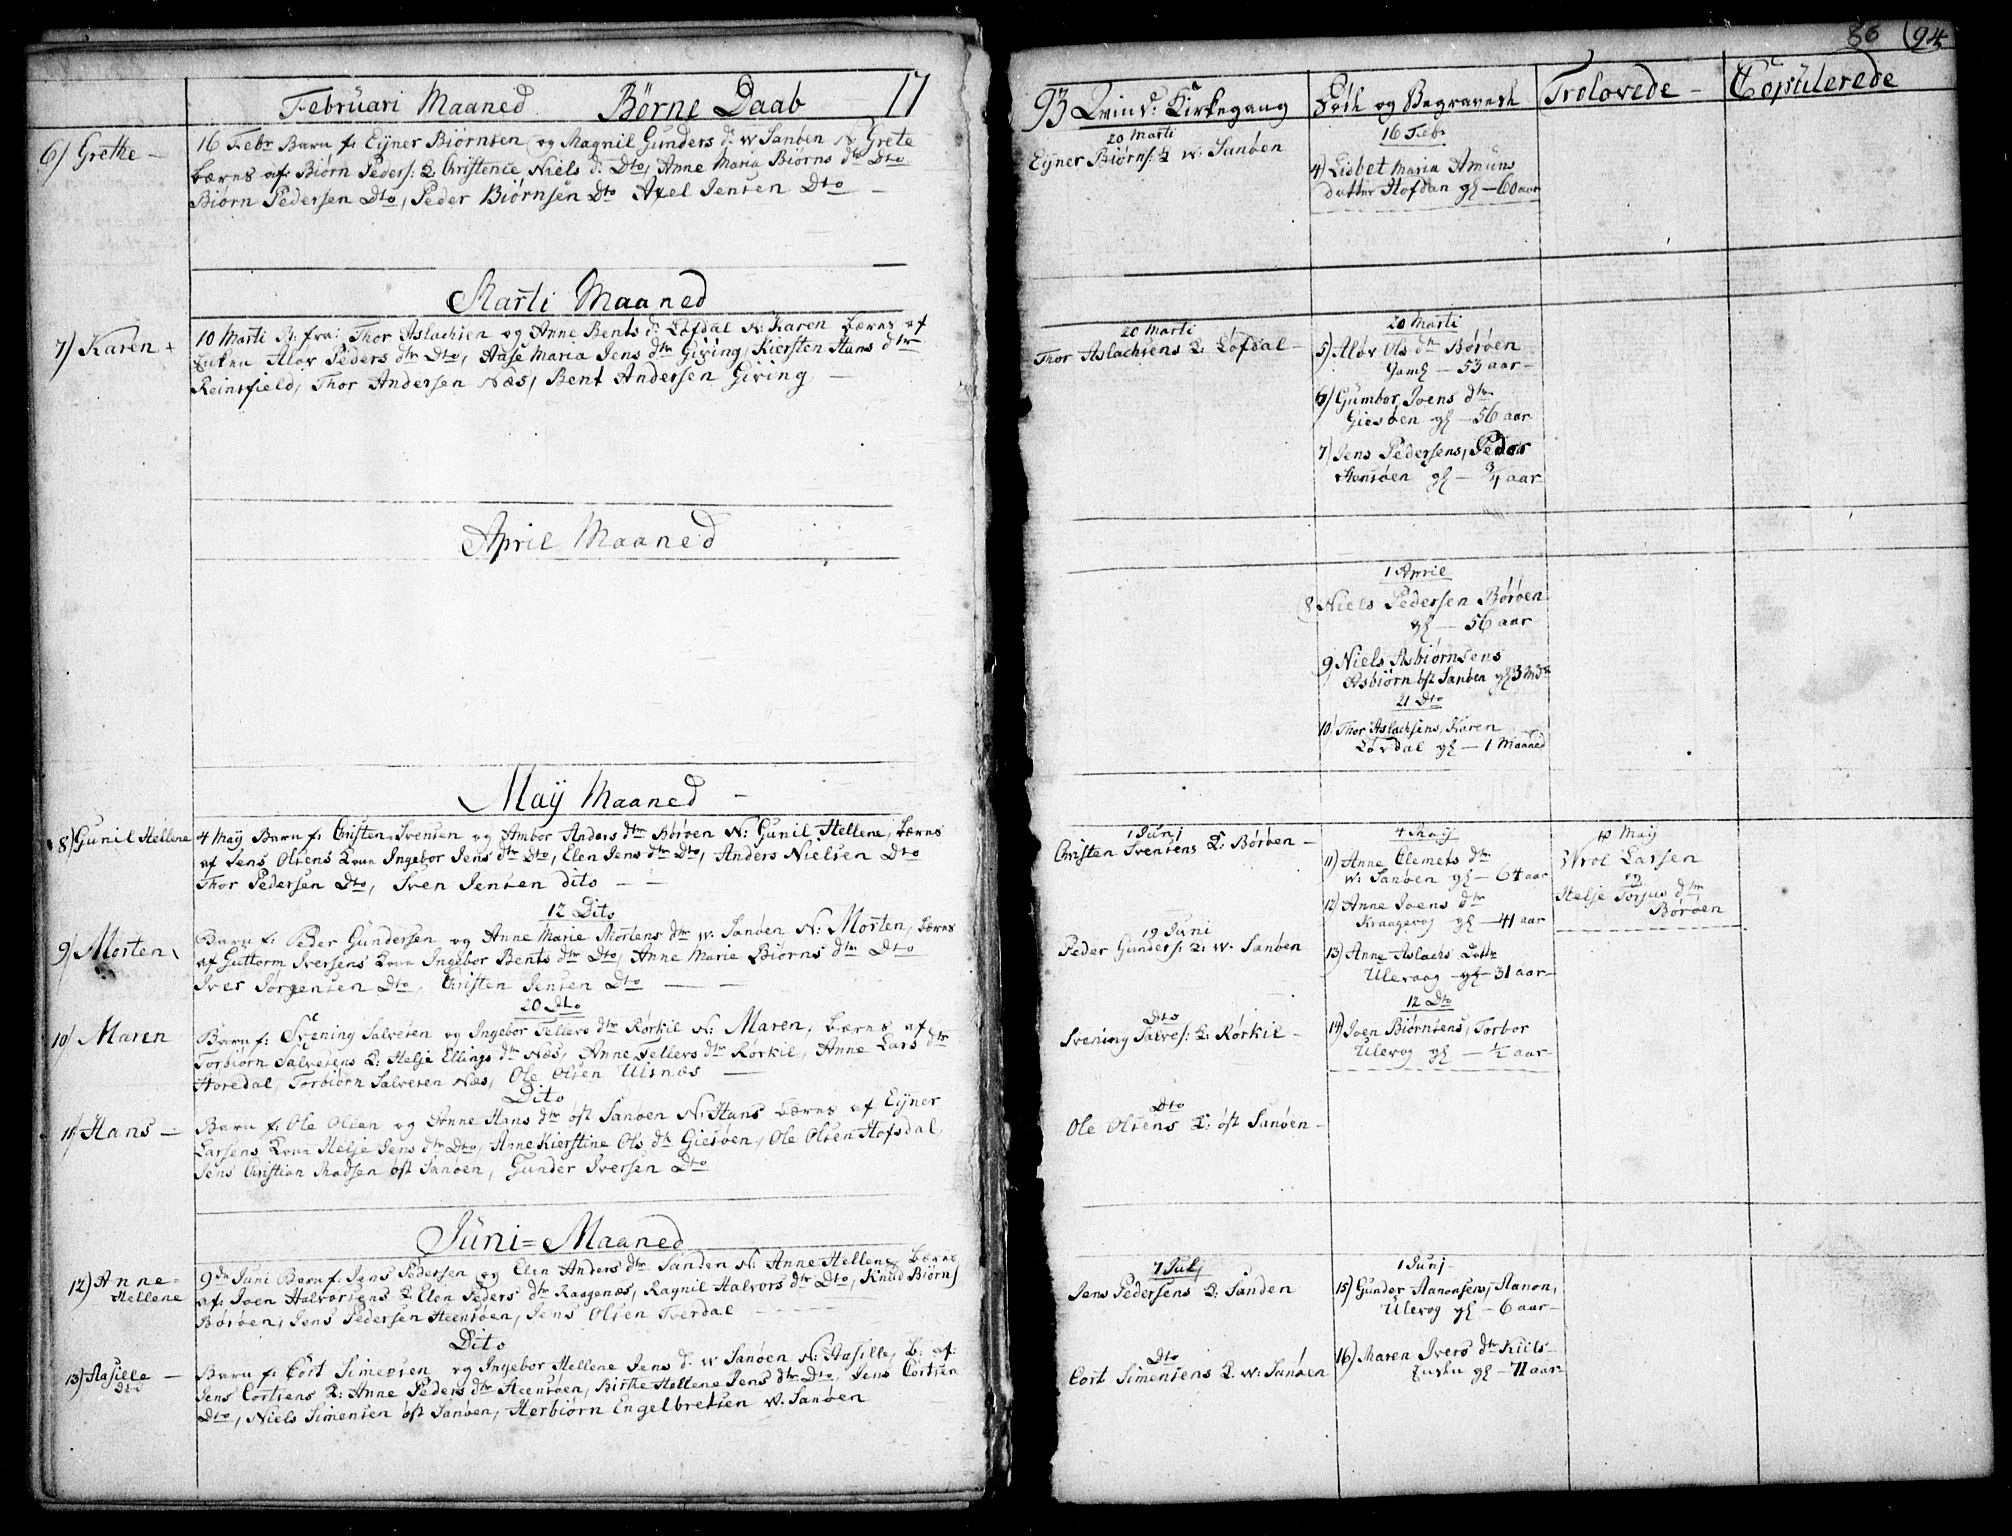 Februari Maaned Børne Daab 17
6) Grethe –
16 Febr Barn f: Eijner Biørnsen og Magnil Gunders d: w Sanøen N: Grete
bærns af: Biørn Peders: Q: Christence Niels d: Dto, Anne Maria Biørns dtr Dto
Biørn Pedersen Dto, Peder Biørnsen Dto Axel Jensen Dto –
Marti Maaned
7) Karen +
10 Marti B: fra: Thor Aslachsen og Anne Bents d: Løfdal N: Karen bærns af
Alov Peders dtr Dto, Aase Maria Jens dtr Giving, Kiersten Hans dtr
Reinsfield, Thor Andersen Næs, Bent Andersen Giving –
April Maaned
Maÿ Maaned –
8) Gunil Hellene
4 Maÿ Barn f: Christen Svensen og Ambor Anders dtr Børøen N: Gunil Hellene, bærns
af Jens Olsens Qvin Ingebor Jens dtr Dto, Elen Jens dtr Dto, Anders Nielsen Dto
Thor Pedersen Dto, Sven Jensen dito –
12 Dito
9) Morten
Barn f: Peder Gundersen og Anne Marie Mortens dtr w: Sanøen N: Morten, bærns
af Guttorm Iversens Qvin Ingebor Bents dtr Dto, Anne Marie Biørns dtr Dto
Iver Jørgensen Dto, Christen Jensen Dto –
20 Dto
10) Maren
Barn f: Svening Salvesen og Ingebor Tellevs dtr Rørkil N: Maren, bærns af
Torbiørn Salvesens Q: Helje Ellings dtr Næs, Anne Tellevs dtr Rørkil, Anne Lars dtr
Horedal, Torbiørn Salvesen Næs, Ole Olsen Ulsnæs –
Dito
11) Hans –
Barn f: Ole Olsen og Anne Hans dtr øst Sanøen N: Hans bærns af Eijner
Larsens Qvin Helje Jens dtr Dto, Anne Kierstine Ols dtr Giesøen, Ole Olsen Hofsdal,
Jens Christian Madsen øst Sanøen, Gunder Iversen Dto
Juni = Maaned
12) Anne =
Hellene
9de Juni Barn f: Jens Pedersen og Elen Anders dtr Sanden N: Anne Hellene bærns
af: Joen Halvorsens Q Elen Peders dtr Kaagenæs, Ragnil Halvors dtr Dto, Knud Biørns
Børøen, Jens Pedersen Steensøen, Jens Olsen Tverdal –
Dito
13) Hasille –
Dto
Barn f: Cort Simensen og Ingebor Hellene Jens d: w Sanøen N: Hasille, b: af:
Jens Cortsens Q: Anne Peders dtr Steensøen, Birthe Hellene Jens dtr Dto, Jens Cortsen
Dto, Niels Simensen øst Sanøen, Herbiørn Engelbretsen w. Sanøen
86 (94
93 Qvind: Kirkegang Døde og Begravede Trolovede – Copulerede
20 Marti
Eijner Biørns: Q w: Sanøen
16 Febr
4) Lisbet Maria Amuns
datter Hofdan gl – 60 aar
20 Marti
Thor Aslachsens Q: Løfdal –
20 Marti
5) Aløv Ols dtr Børøen
Gaml – 53 aar –
6) Gumbor Joens dtr
Giesøen gl – 56 aar
7) Jens Pedersens, Peder
Stensøen gl – 3/4 aar
1 April
8 Niels Pedersen Børøen
gl – 56 aar
9 Niels Asbiørnsens
Asbiørn øst Sanøen gl 3 mdr
21 Dto
10) Thor Aslachsens, Karen
Løvdal gl – 1 Maaned
1 Junj
Christen Svensens Q: Børøen –
4 Maÿ
11) Anne Clemets dtr
w: Sanøen gl – 64 aar
12) Anne Joens dtr
Kraagevog gl – 41 aar
13) Anne Aslachs Dotter
Ulevaag gl – 31 aar –
12 Dto
14) Joen Biørnsens, Torbor
Ulevog gl – 1/2 aar –
10 Maÿ
Wrol Larsen
og
Helje Torjus dtr
Børøen
19 Juni
Peder Gunders: Q: w: Sanøen
Dto
Svening Salves: Q: Rørkil –
Dto
Ole Olsens Q: øst Sanøen –
7 Julj
Jens Pedersens Q: Sanden
1 Junj –
15) Gunder Aanonsens, Aanon,
Ulevog gl – 6 aar –
Dto
Cort Simensens Q w: Sanøen
16) Maren Ivers dtr Kiils –
gl – 71 aar –